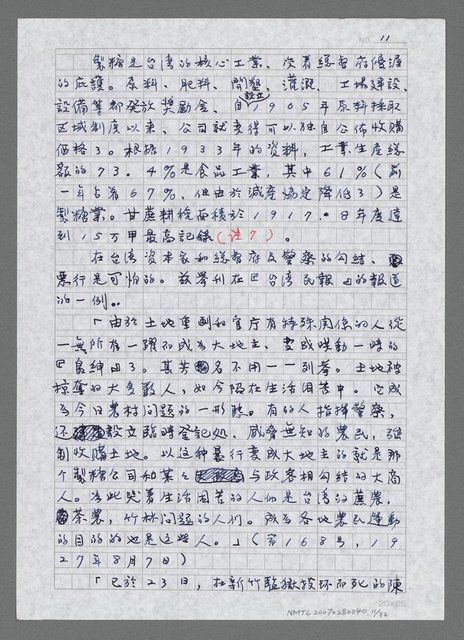 11
製糖是台湾的核心工業、次着總督府優渥
的庇護。原料、肥料、開墾、灌溉、工場建設、
設備等都發放奨励金、自設立1905年原料採取
区域制度以来、公司就变得可以独自公佈收購
価格了。根據1933年的資料、工業生産總
額的73.4%是食品工業、其中61%(前
一年占着67%、但由於減産協定降低了)是
製糖業。甘蔗耕種面積於1917·8年度達
到15万甲最高記録(注7)。
在台湾資本家和總督府及警察的勾結、
票行是可怕的。茲舉刊在『台湾民報』的報道
的一例。
「由於土地重劃和官庁有特殊関係的人從
一無所有一躍而成為大地主、变成哄動一時的
『島紳』了。其芳名不用一一列着。土地被
掠奪的大多数人、如今陥在生活困苦中。它成
為今日農村問題的一形態。有的人指揮警察、
还設立臨時登記処、威脅無知的農民、強
制收購土地。以这种暴行变成大地主的就是那
个製糖公司和某々与政客相勾結的大商
人。為此哭着生活困苦的人们是台湾的蔗農、
茶農、竹林問題的人们。成為各地農民運動
的目的的也是这些人。」(第168号、19
27年8月7日)
「已於23日、在新竹監獄投环而死的陳
20×25
NMTL20070280040 11/32